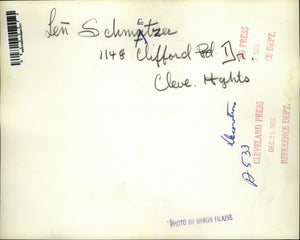 Len Schmetzer
1148 Clifford Rd. Dr
Cleve. Hghts
PRESS
CE DEPT.
Decorations
D-533
CLEVELAND PRESS
DEC 21
REFERENCE DEPT.
PHOTO BY BYRON FILKINS